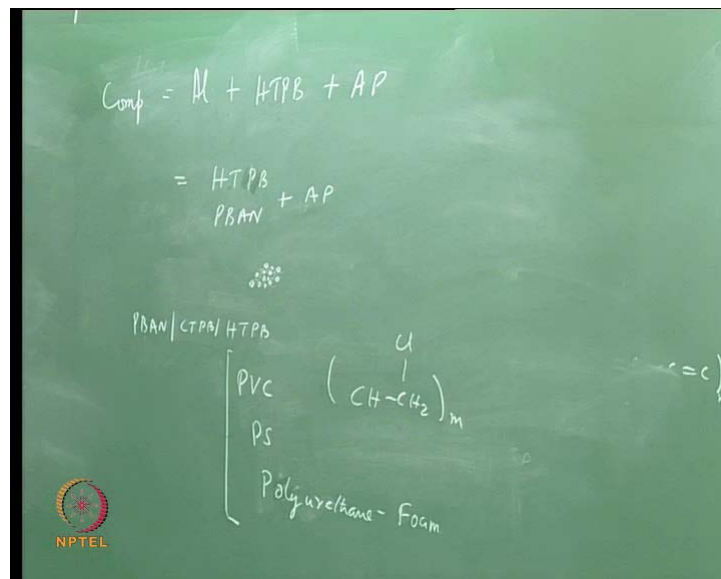 Comp = Al + HTPB + AP
= HTPB
PBAN + AP
PBAN/CTPB/HTPB
PVC
Cl
( CH-CH2 )m
=C)
PS
Polyurethane - Foam
NPTEL